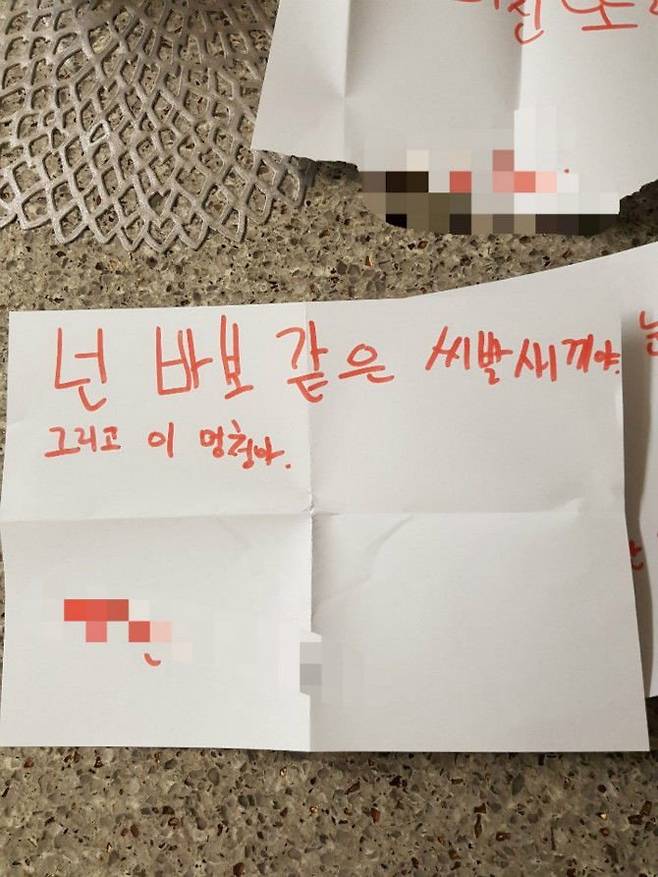 넌 바보 같은 씨발새끼야.
그리고 이 멍청아.